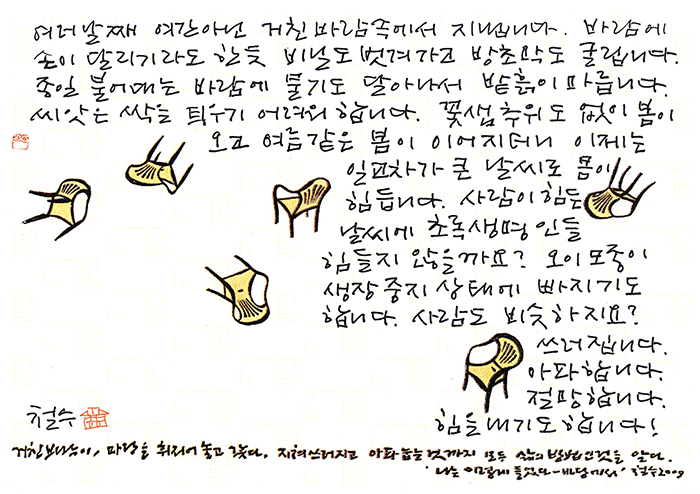 여러날째 여간아닌 거친바람속에서 지냅니다. 바람에
손이 달리기라도 한듯 비닐도 벗겨가고 방초막도 굴립니다.
종일 불어대는 바람에 물기도 달아나서 밭흙이 마릅니다.
씨앗은 싹을 틔우기 어려워합니다. 꽃샘추위도 없이 봄이
오고 여름같은 봄이 이어지더니 이제는
일교차가 큰 날씨로 몸이
힘듭니다. 사람이 힘든
날씨에 초록생명인들
힘들지 않을까요? 오이모종이
생장중지 상태에 빠지기도
합니다. 사람도 비슷하지요?
쓰러집니다.
아파합니다.
절망합니다.
힘을내기도합니다!
철수
거친바람이, 마당을 휘저어 놓고 갔다. 지쳐쓰러지고 아파 눕는것까지 모두 삶의 것을 안다.
'나는 이렇게 들었다 - 마당에서' 철수2009